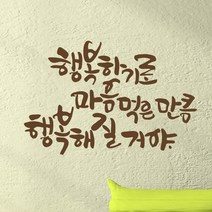 행복하기로
마음먹은 만큼
행복해 질 거야.